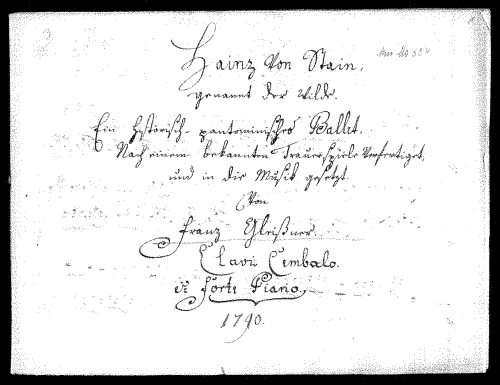 Hainz von Stain,
genannt der Wilde.
Ein historisch-pantominisches Ballet,
Nach einem bekannten Trauerspiele verfertiget,
und in die Musik gesetzt
Von
Franz Gleißner.
Clavi Cembalo.
Forte Piano.
1790.